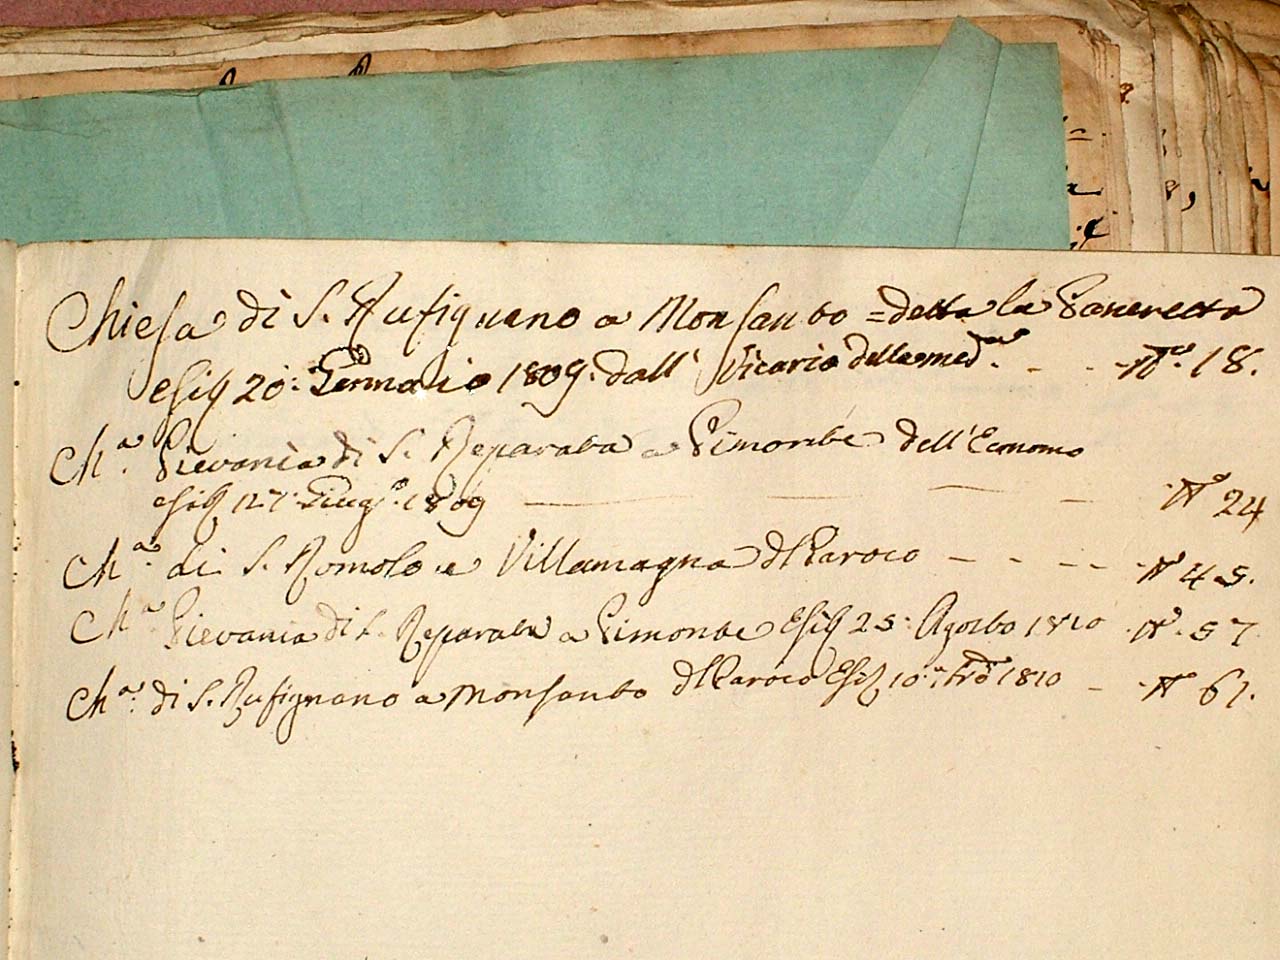 Chiesa di S. Rufignano a Monsanto = detta la
esig 20: Gennaio 1809. dall' Vicario della med.ª - - - Nº. 18.
Ch.ª Pievania di S. Reparata a Pimonte dell'Economo
esig 12: Giug.º 1809 — — — - Nº 24
Ch.ª di S. Romolo a Villamagna Paroco - - - - Nº 45.
Ch.ª Pievania di S. Reparata a Pimonte Esig 25: Agosto 1810 Nº. 57
Ch.ª di S. Rufignano a Monsanto Paroco Esig 10: 1810 - Nº 61.